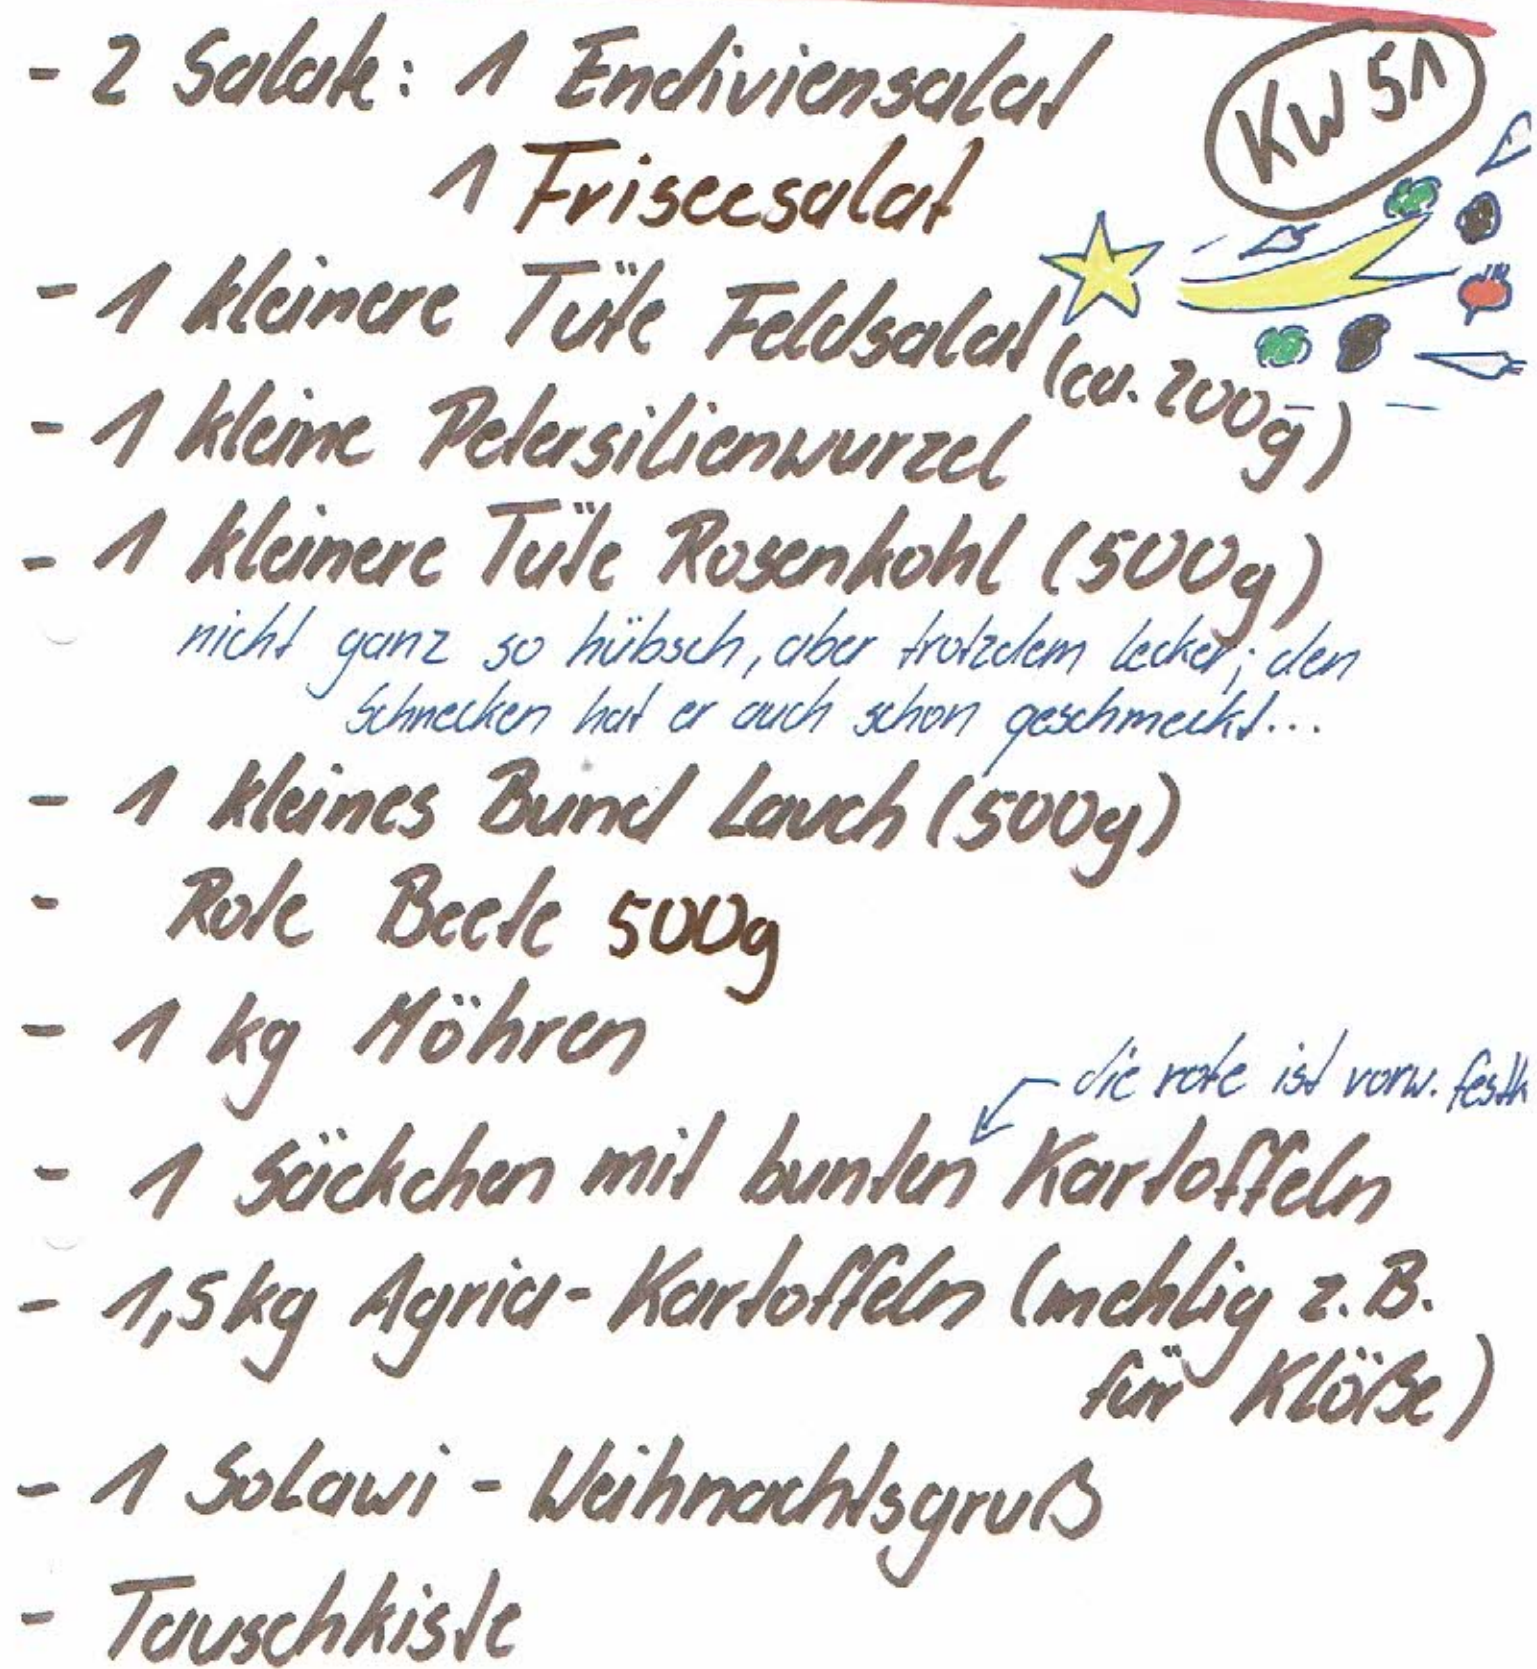 - 2 Salate: 1 Endiviensalat
KW 51
1 Friseesalat
- 1 kleinere Tüte Feldsalat (ca. 200g)
- 1 kleine Petersilienwurzel
- 1 kleinere Tüte Rosenkohl (500g)
nicht ganz so hübsch, aber trotzdem lecker; den
Schnecken hat er auch schon geschmeckt...
- 1 kleines Bund Lauch (500g)
- Rote Beete 500g
- 1 kg Möhren
die rote ist vorw. festk
- 1 Säckchen mit bunten Kartoffeln
- 1,5kg Agria-Kartoffeln (mehlig z.B.
für Klöße)
- 1 Solawi - Weihnachtsgruß
- Tauschkiste